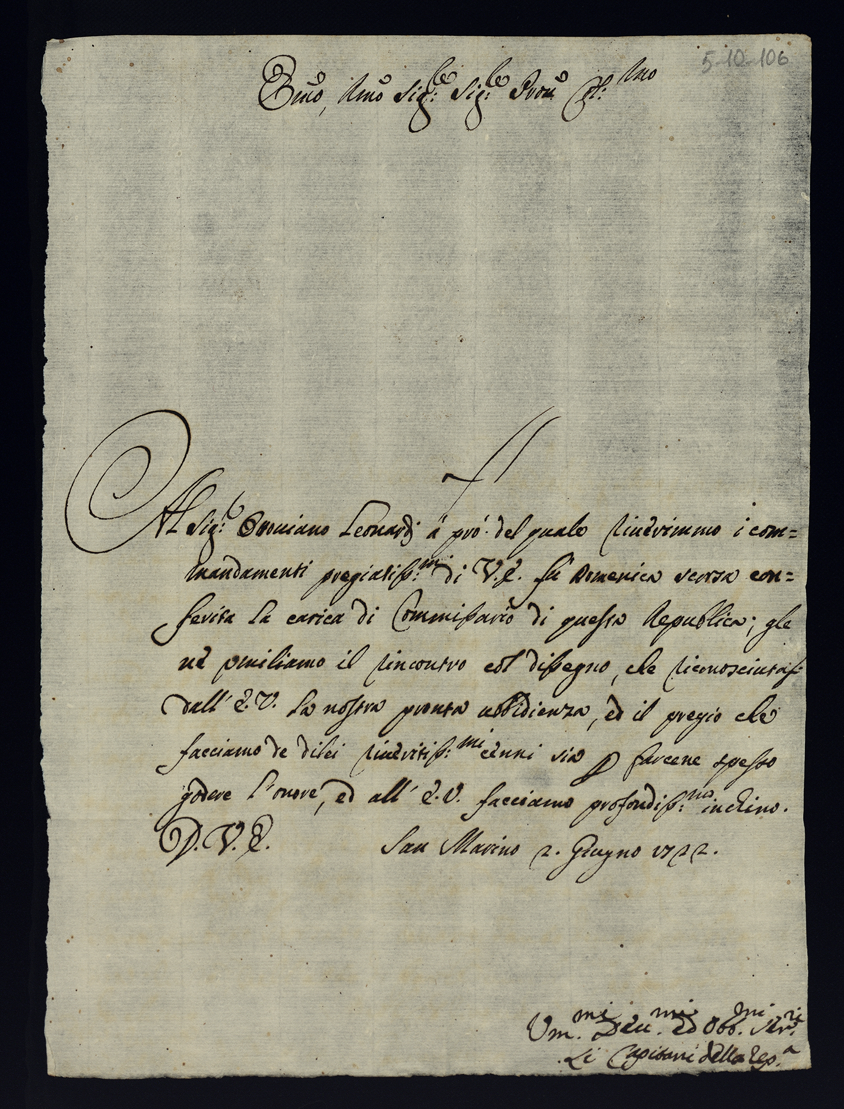 5-10-106
Emo, Rmo Sig:re Sig:re Pron Col:mo
Al Sig:r Leonardj à prò del quale riverimmo i com=
mandamenti pregiatiss:mi di V.E. fù Domenica scorsa con=
ferita la carica di Commissario di questa Republica; gle
nè umiliamo il rincontro col dissegno, che riconosciutasi
dall' E.V. la nostra pronta ubbidienza, ed il pregio che
facciamo de di lei riveritiss:mi cenni sia p farcene spesso
godere l'onore, ed all' E.V. facciamo profondiss:mo inchino.
D.V.E. San Marino 2. Giugno 1722.
Um.mi Dev.mi ed Obb.mi Ser.ri
Li Capitani della Rep.a